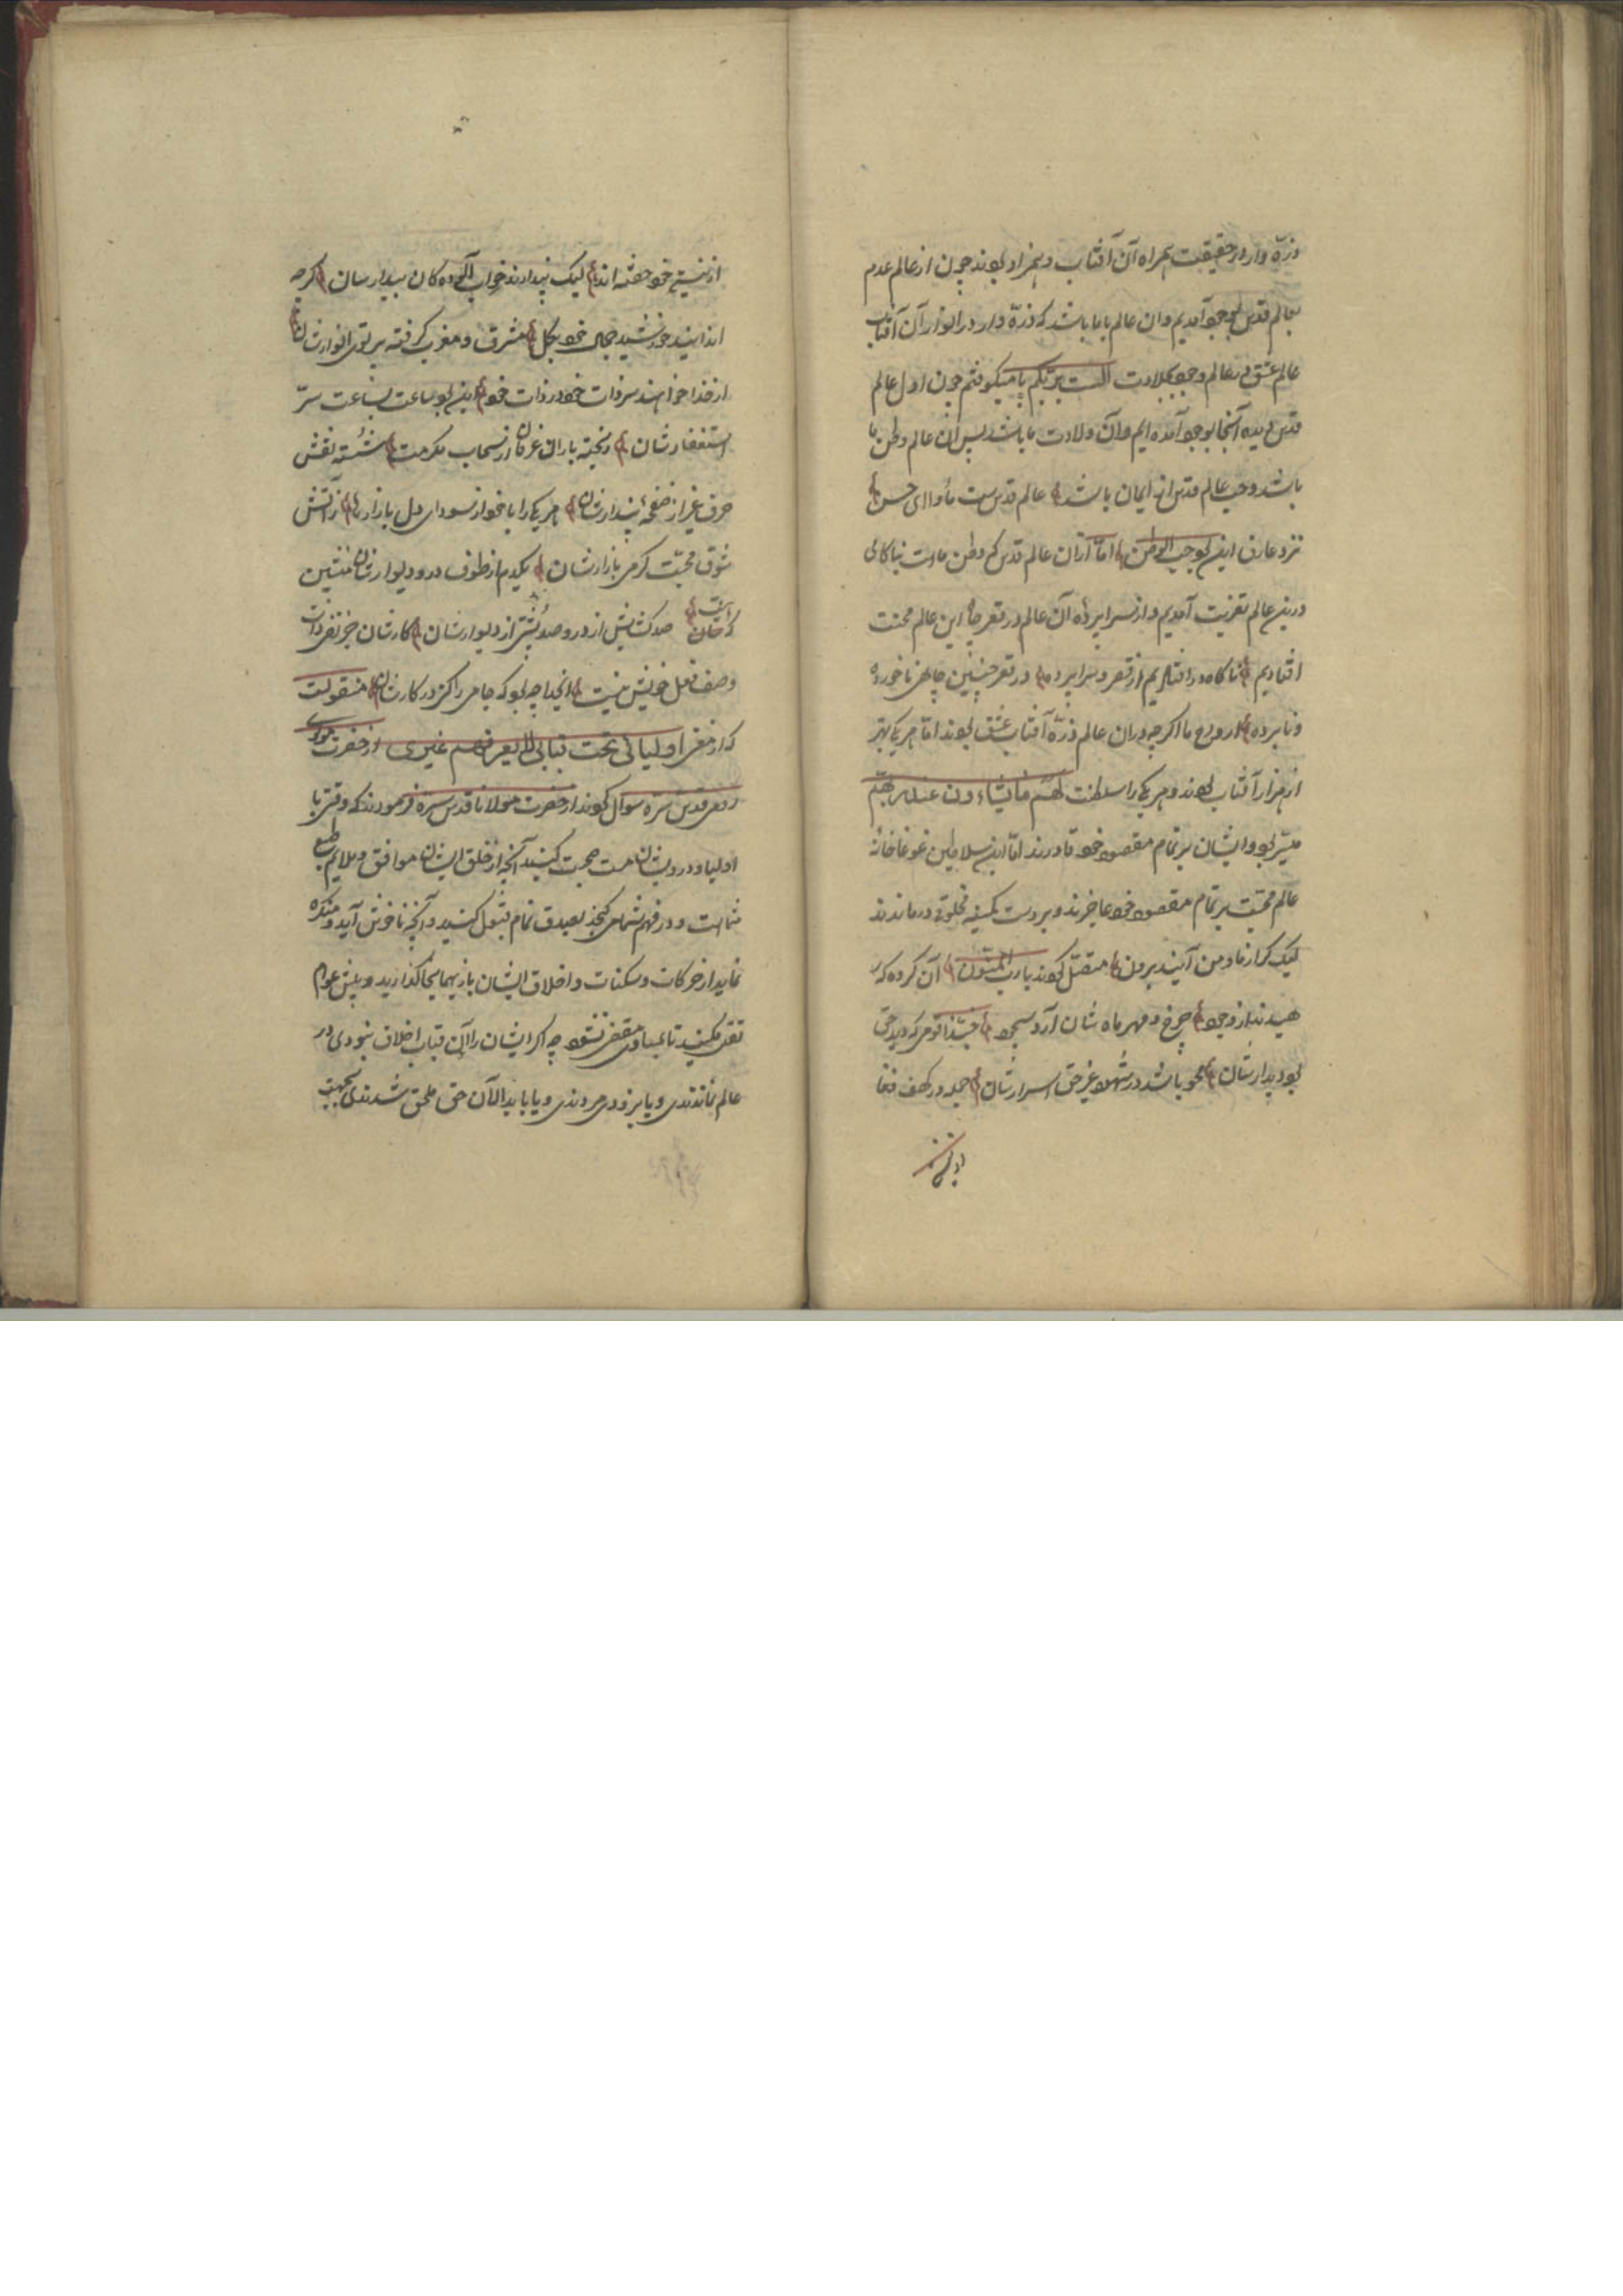 ذرّه وار در حقیقت همراه آن آفتاب و همزاد بوند چون از عالم عدم
بعالم قدس بوجود آمدیم و آن عالم بابا باشد که ذرّه وار در انوار آن آفتاب
عالم عشق در عالم وجود بیلادت الست بربکم با میکوفتم چون اول عالم
قدس دیده آنجا بوجود آمده ایم و آن ولادت ما باشد پس آن عالم وطن ما
باشد و حب عالم قدس از ایمان باشد عالم قدس ست مأوای حسن
نزد عارف این بود حب الوطن امّا از آن عالم قدس که وطن ماست بناکامی
درین عالم بغربت آمدیم و از سراپرده آن عالم در قعر چاه این عالم محنت
افتادیم ناکاه در افتادیم از قصر و سراپرده در قعر چنین چاهی ناخورده
و نابرده ارواح ما اکرچه در آن عالم ذرّه آفتاب عشق بوند امّا هر یکی بهتر
از هزار آفتاب بوند و هر یکی را سلطنت لهم ما یشاءون عند ربهم
میسّر بود و ایشان بر تمام مقصود خود قادرند امّا این سلاطین غوغا خانهٔ
عالم محبّت بر تمام مقصود خود عاجزند و بر دست کمینه مخلوقی درماندند
لیک کر از ما و من آیند برون متصل کوند با ریب المنون آن کروه که
هیبند از وجود چرخ و مهر و ماه شان آرد سجود حبّذا قومی که دید حق
بود دیدارشان محو باشد در شهود غیر حق اسرارشان جمله در کهف فنا
از نیستی خود خفته اند لیک پندارند خواب آلوده کان بیدارسان کرچه
اندایند خورشید جمال خود بکل مشرق و مغرب کرفته پرتو انوارشان
از خدا خواهند ستر ذات خود در ذات خود این بود ساعت بساعت سرّ
استغفارشان ریخته باران عرفان از سحاب مکرمت شسته نقش
حرف غیر از صفحهٔ پندارشان هر یکی را با خود از سودای دل بازارها ز آتش
شوق محبّت کرمی بازارشان یکدم از طوف در و دیوارشان منشین
که هست صد کشایش از در و صد پشتی از دیوارشان کارشان جز نفی ذات
وصف و فعل خویش نیست اینجا چه بود که جامی راکر در کارشان منقولست
که از معنی اولیائی تحت قبابی لا یعرفهم غیری از حضرت مولوی
رومی قدس سرّه سؤال کوند از حضرت مولانا قدس سرّه فرمودند که وقتی با
اولیا و درویشان صحبت کنید آنچه از خلق ایشان موافق و ملایم طبع
شماست و در فهم شما می کنجد بصدق تمام قبول کنید و آنچه ناخوش آید و منکره
نماید از حرکات و سکنات و اخلاق ایشان باز بهما نجا کذارید و پیش عوام
نقل مکنید تا عباد متغیر نشود چه اکر ایشان را آن قباب اخلاق نبودی در
عالم نماندندی و یا بزودی مردندی و یا بابدالآن حق ملحق شدندی بجهت